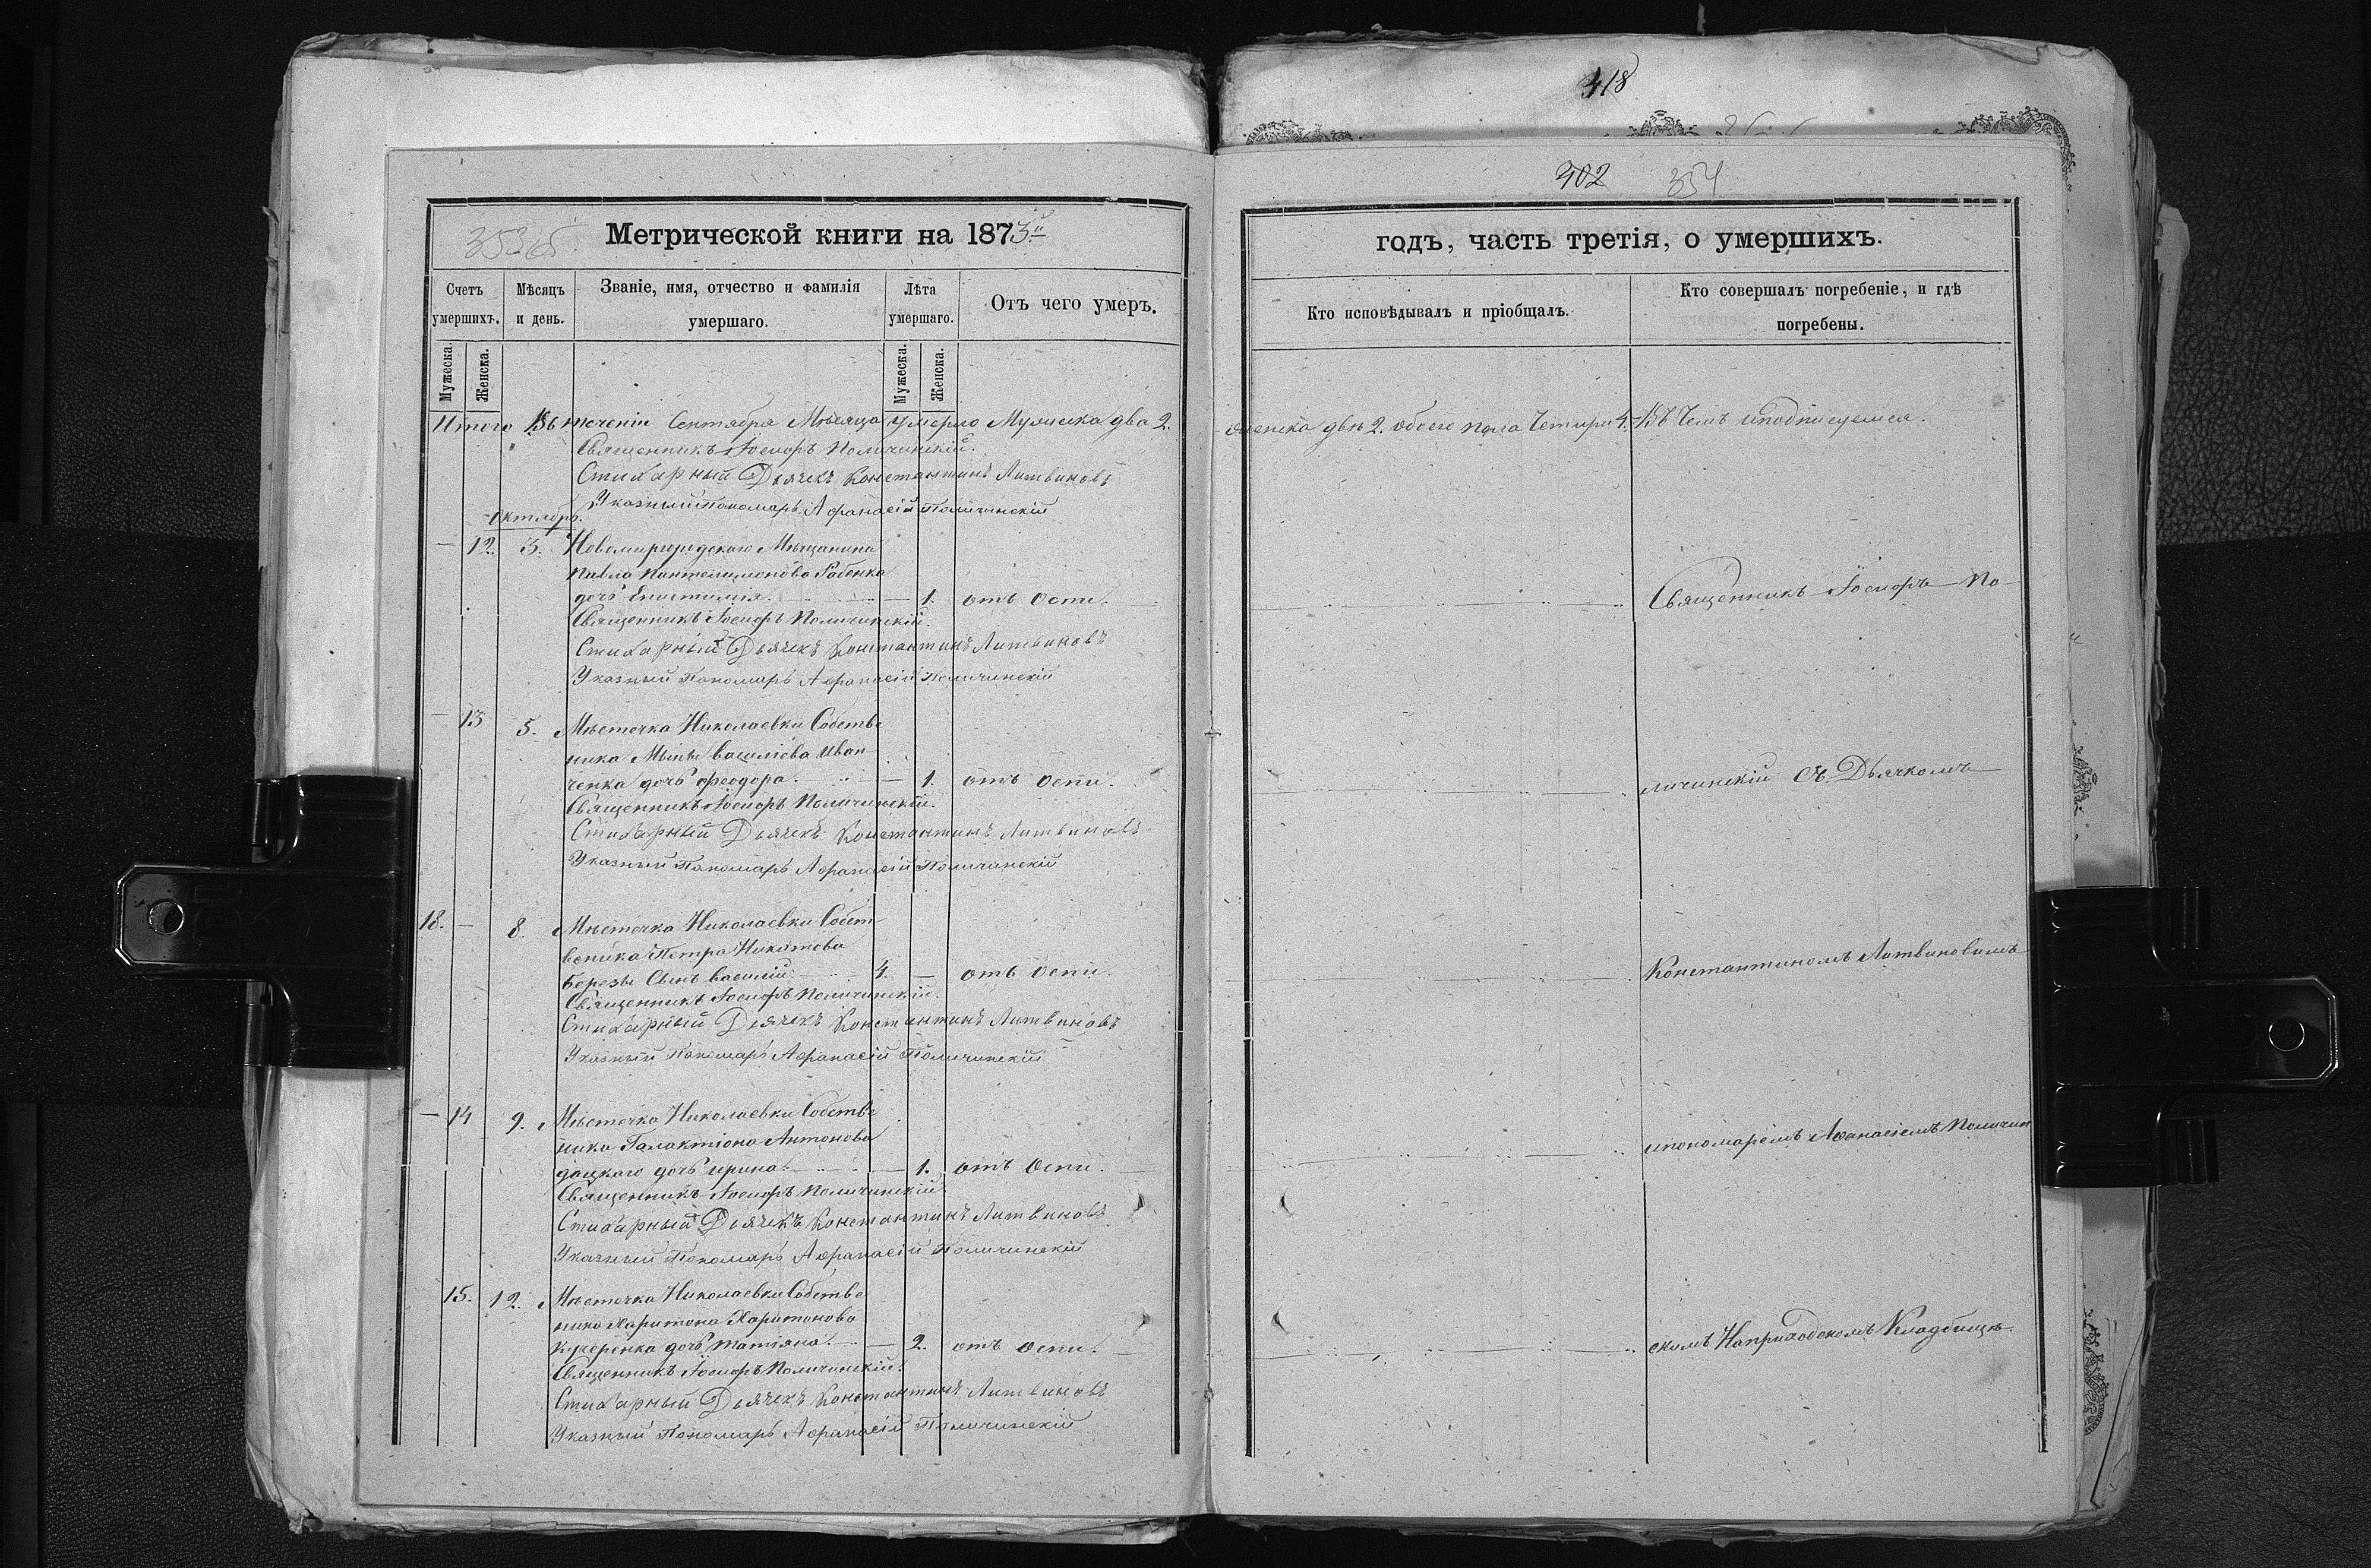 418
402 354
353 об.
Метрической книги на 1873й
годъ, часть третія, о умершихъ.
Счетъ умершихъ.
Мѣсяцъ и день.
Званіе, имя, отчество и фамилія умершаго.
Лѣта умершаго.
Отъ чего умеръ.
Кто исповѣдывалъ и пріобщалъ.
Кто совершалъ погребеніе, и гдѣ погребены.
Мужеска. Женска. Мужеска. Женска.
Итого Въ теченіи Сентября Мѣсяца умерло Мужеска два 2.
женска двѣ 2. обоего пола Четыри 4. Въ Чемъ иподписуемся.
Священникъ Іосифъ Поличинскій.
Стихарный Дьячекъ Константинъ Литвиновъ
Указный Пономарь Афанасій Поличинскій
Октябрь.
— 12. 3. Новомиргородского Мѣщанина
Павла Пантелимонова
дочь Епистимія. — 1. отъ Оспи.
Священникъ Іосифъ По-
Священникъ Іосифъ Поличинскій.
Стихарный Дьячекъ Константинъ Литвиновъ
Указный Пономарь Афанасій Поличинскій
— 13 5. Мѣстечка Николаевки Собстве
ника Василіева Иван-
ченка дочь Феодора. — 1. отъ Оспи.
личинскій Съ Дьячкомъ
Священникъ Іосифъ Поличинскій.
Стихарный Дьячекъ Константинъ Литвиновъ
Указный Пономарь Афанасій Поличинскій
18. — 8. Мѣстечка Николаевки Собст
веника Петра Никитова
Березы Сынъ Василій 4. — отъ Оспи.
Константиномъ Литвиновимъ
Священникъ Іосифъ Поличинскій.
Стихарный Дьячекъ Константинъ Литвиновъ
Указный Пономарь Афанасій Поличинскій
— 14 9. Мѣстечка Николаевки Собстве
ника Галактіона Антонова
дацкаго дочь Ирина. — 1. отъ Оспи.
ипономарёмъ Афанасіемъ Поличин
Священникъ Іосифъ Поличинскій.
Стихарный Дьячекъ Константинъ Литвиновъ
Указный Пономарь Афанасій Поличинскій
15. 12. Мѣстечка Николаевки Собстве
ника Харитона Харитонова
Кучеренка дочь Татіяна. — 2. отъ Оспи.
скимъ Наприходскомъ Кладбищѣ.
Священникъ Іосифъ Поличинскій.
Стихарный Дьячекъ Константинъ Литвиновъ
Указный Пономарь Афанасій Поличинскій